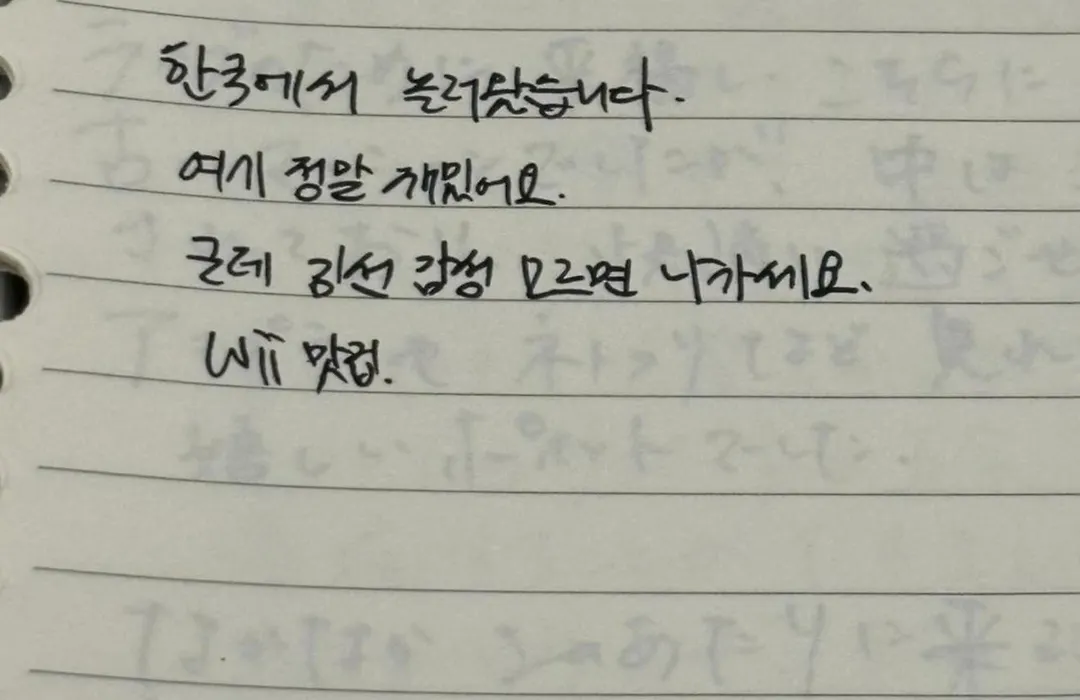 한국에서 놀러왔습니다.
여기 정말 재밌어요.
근데 감성 모르면 나가세요.
Wii 맛럽.